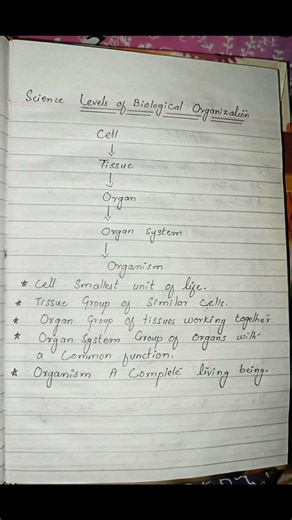 Science Levels of Biological Organization
Cell
↓
Tissue
↓
Organ
↓
Organ System
↓
Organism
★ Cell Smallest unit of life.
★ Tissue Group of Similar Cells.
★ Organ Group of tissues working together
★ Organ System Group of Organs with
a Common function.
★ Organism A Complete living being.